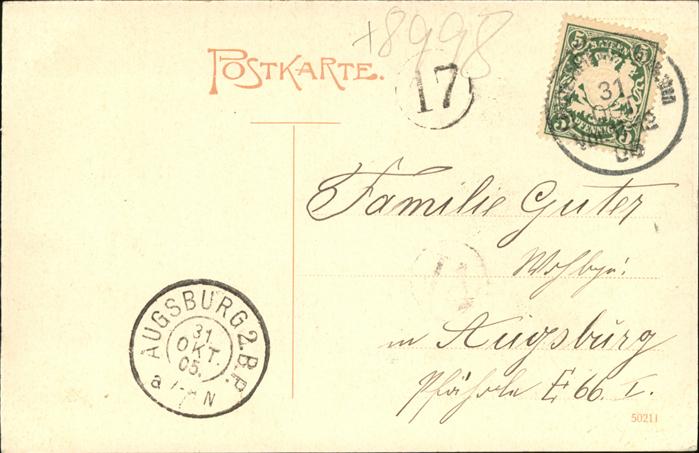 +8998
POSTKARTE.
17
5 BAYERN 5
31
5 PFENNIG 5
Familie Guter
Wohlgeb.
in Augsburg
E 66. I.
AUGSBURG 2.B.P.
31.
OKT.
05.
50211